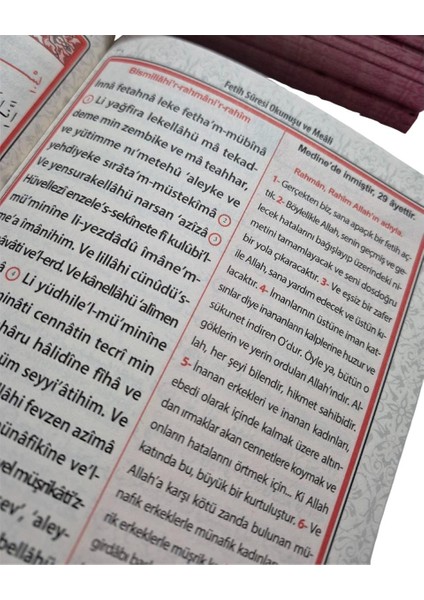 Fetih Sûresi Okunuşu ve Meâli
Bismillâhi'r-rahmâni'r-rahîm
İnnâ fetahnâ leke fetha'm-mübînâ
① Li yağfira lekellâhü mâ tekad.
deme min zembike ve mâ teahhar,
ve yütimme ni'metehû 'aleyke ve
yehdiyeke sırâta'm-müstekîmâ ②
Ve yensurakellâhü narsan 'azîzâ ③
Hüvellezî enzele's-sekînete fî kulûbi'l-
mü'minîne li-yezdâdû îmâne'm-
a îmânihim. Ve lillâhi cünûdü's-
avâti ve'l-erd. Ve kânellâhü 'alîmen
④ Li yüdhile'l-mü'minîne
inâti cennâtin tecrî min
hâru hâlidîne fîhâ ve
üm seyyi'âtihim. Ve
âhi fevzen azîmâ
ünâfikîne ve'l-
vel müşrikâti'z-
sev', 'aley-
bellâhü
Medine'de inmiştir, 29 âyettir.
Rahmân, Rahîm Allah'ın adıyla.
1- Gerçekten biz, sana apaçık bir fetih aç-
tık. 2- Böylelikle Allah, senin geçmiş ve ge-
lecek hatalarını bağışlayıp üzerindeki ni-
metini tamamlayacak ve seni dosdoğru
bir yola çıkaracaktır. 3- Ve eşsiz bir zafer
ile Allah sana yardım edecek ve üstün kı-
lacaktır. 4- İmanlarının üstüne iman kat-
sınlar diye inananların kalplerine huzur ve
sükunet indiren O'dur. Öyle ya, bütün o
göklerin ve yerin orduları Allah'ındır. Al-
lah, her şeyi bilendir, hikmet sahibidir.
5- İnanan erkekleri ve inanan kadınları,
ebedi olarak içinde kalmak üzere altın-
dan ırmaklar akan cennetlere koymak ve
onların hatalarını örtmek için... Ki Allah
katında bu, büyük bir kurtuluştur. 6- Ve
Allah'a karşı kötü zanda bulunan mü-
nafık erkeklerle münafık kadınları
rik erkeklerle müşrik k
girdâbı ba